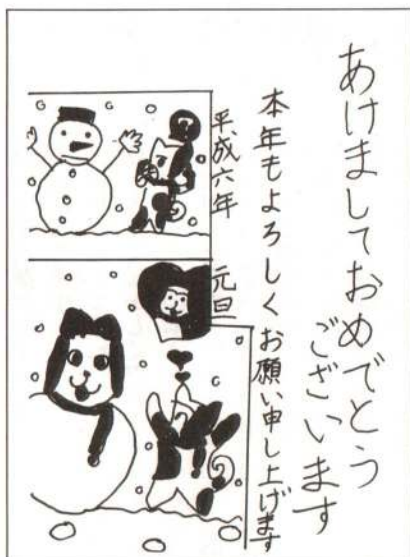 あけましておめでとう
ございます
本年もよろしくお願い申し上げます
平成六年
元旦